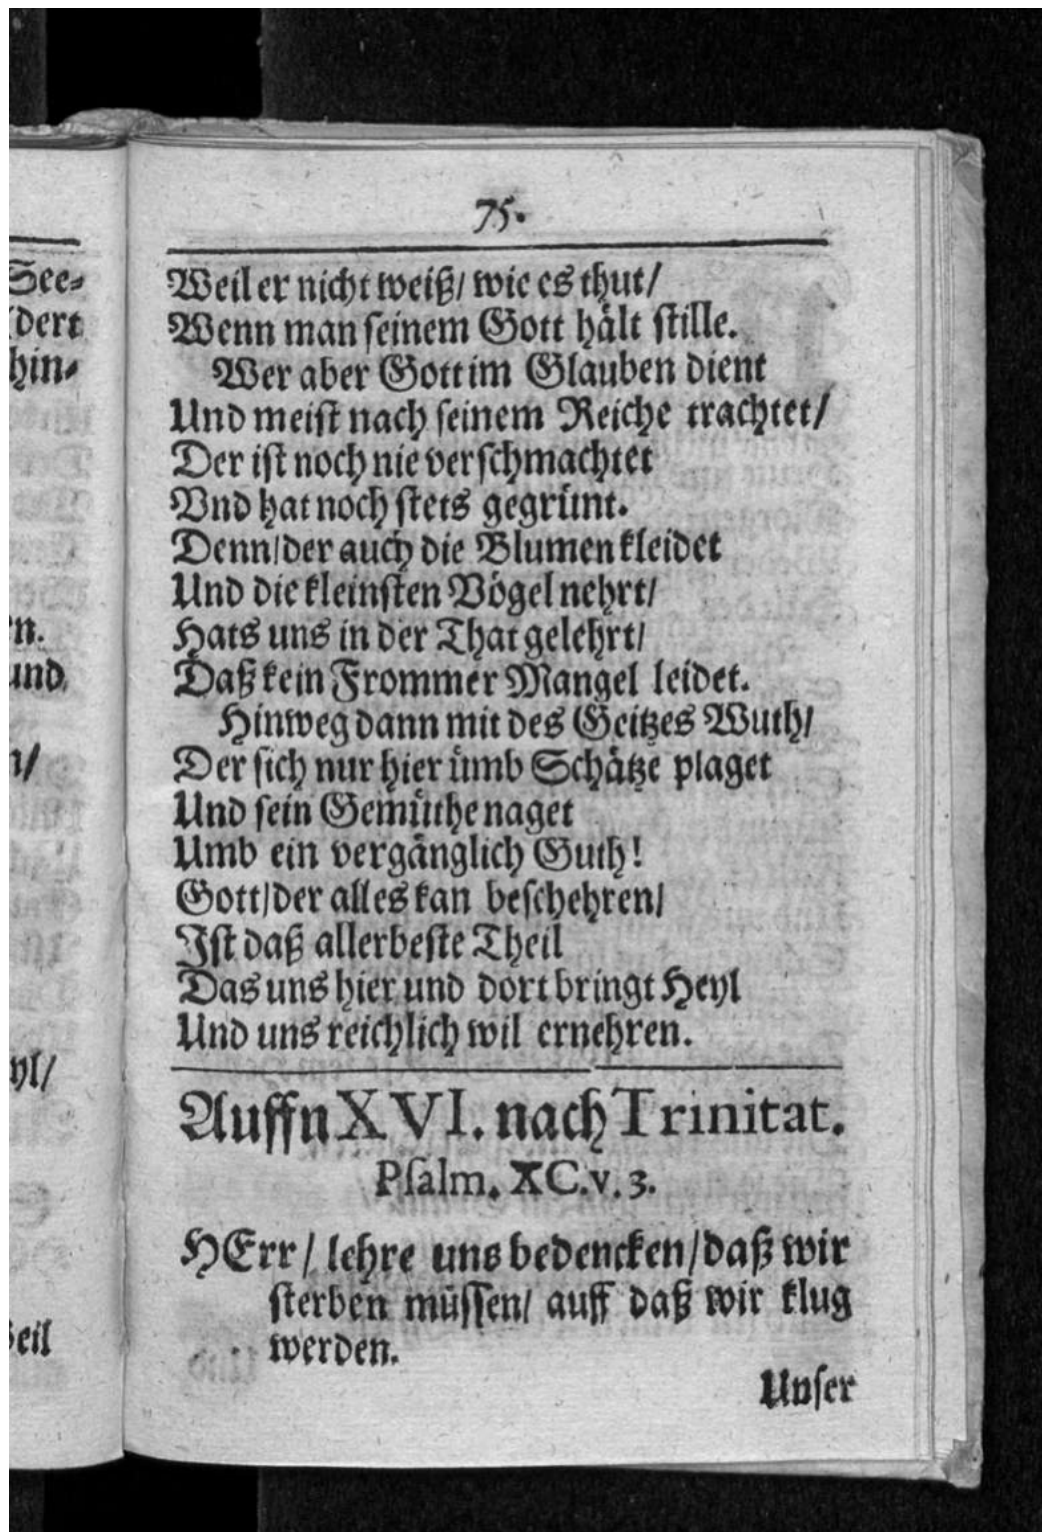 See-
dert
hin-
n.
und
n/
yl/
eil
75.
Weil er nicht weiß/ wie es thut/
Wenn man seinem Gott hält stille.
Wer aber Gott im Glauben dient
Und meist nach seinem Reiche trachtet/
Der ist noch nie verschmachtet
Vnd hat noch stets gegrünt.
Denn/der auch die Blumen kleidet
Und die kleinsten Vögel nehrt/
Hats uns in der That gelehrt/
Daß kein Frommer Mangel leidet.
Hinweg dann mit des Geitzes Wuth/
Der sich nur hier ümb Schätze plaget
Und sein Gemüthe naget
Umb ein vergänglich Guth!
Gott/der alles kan beschehren/
Ist daß allerbeste Theil
Das uns hier und dort bringt Heyl
Und uns reichlich wil ernehren.
Auffn XVI. nach Trinitat.
Psalm. XC.v.3.
HErr/ lehre uns bedencken/daß wir
sterben müssen/ auff daß wir klug
werden.
Unser